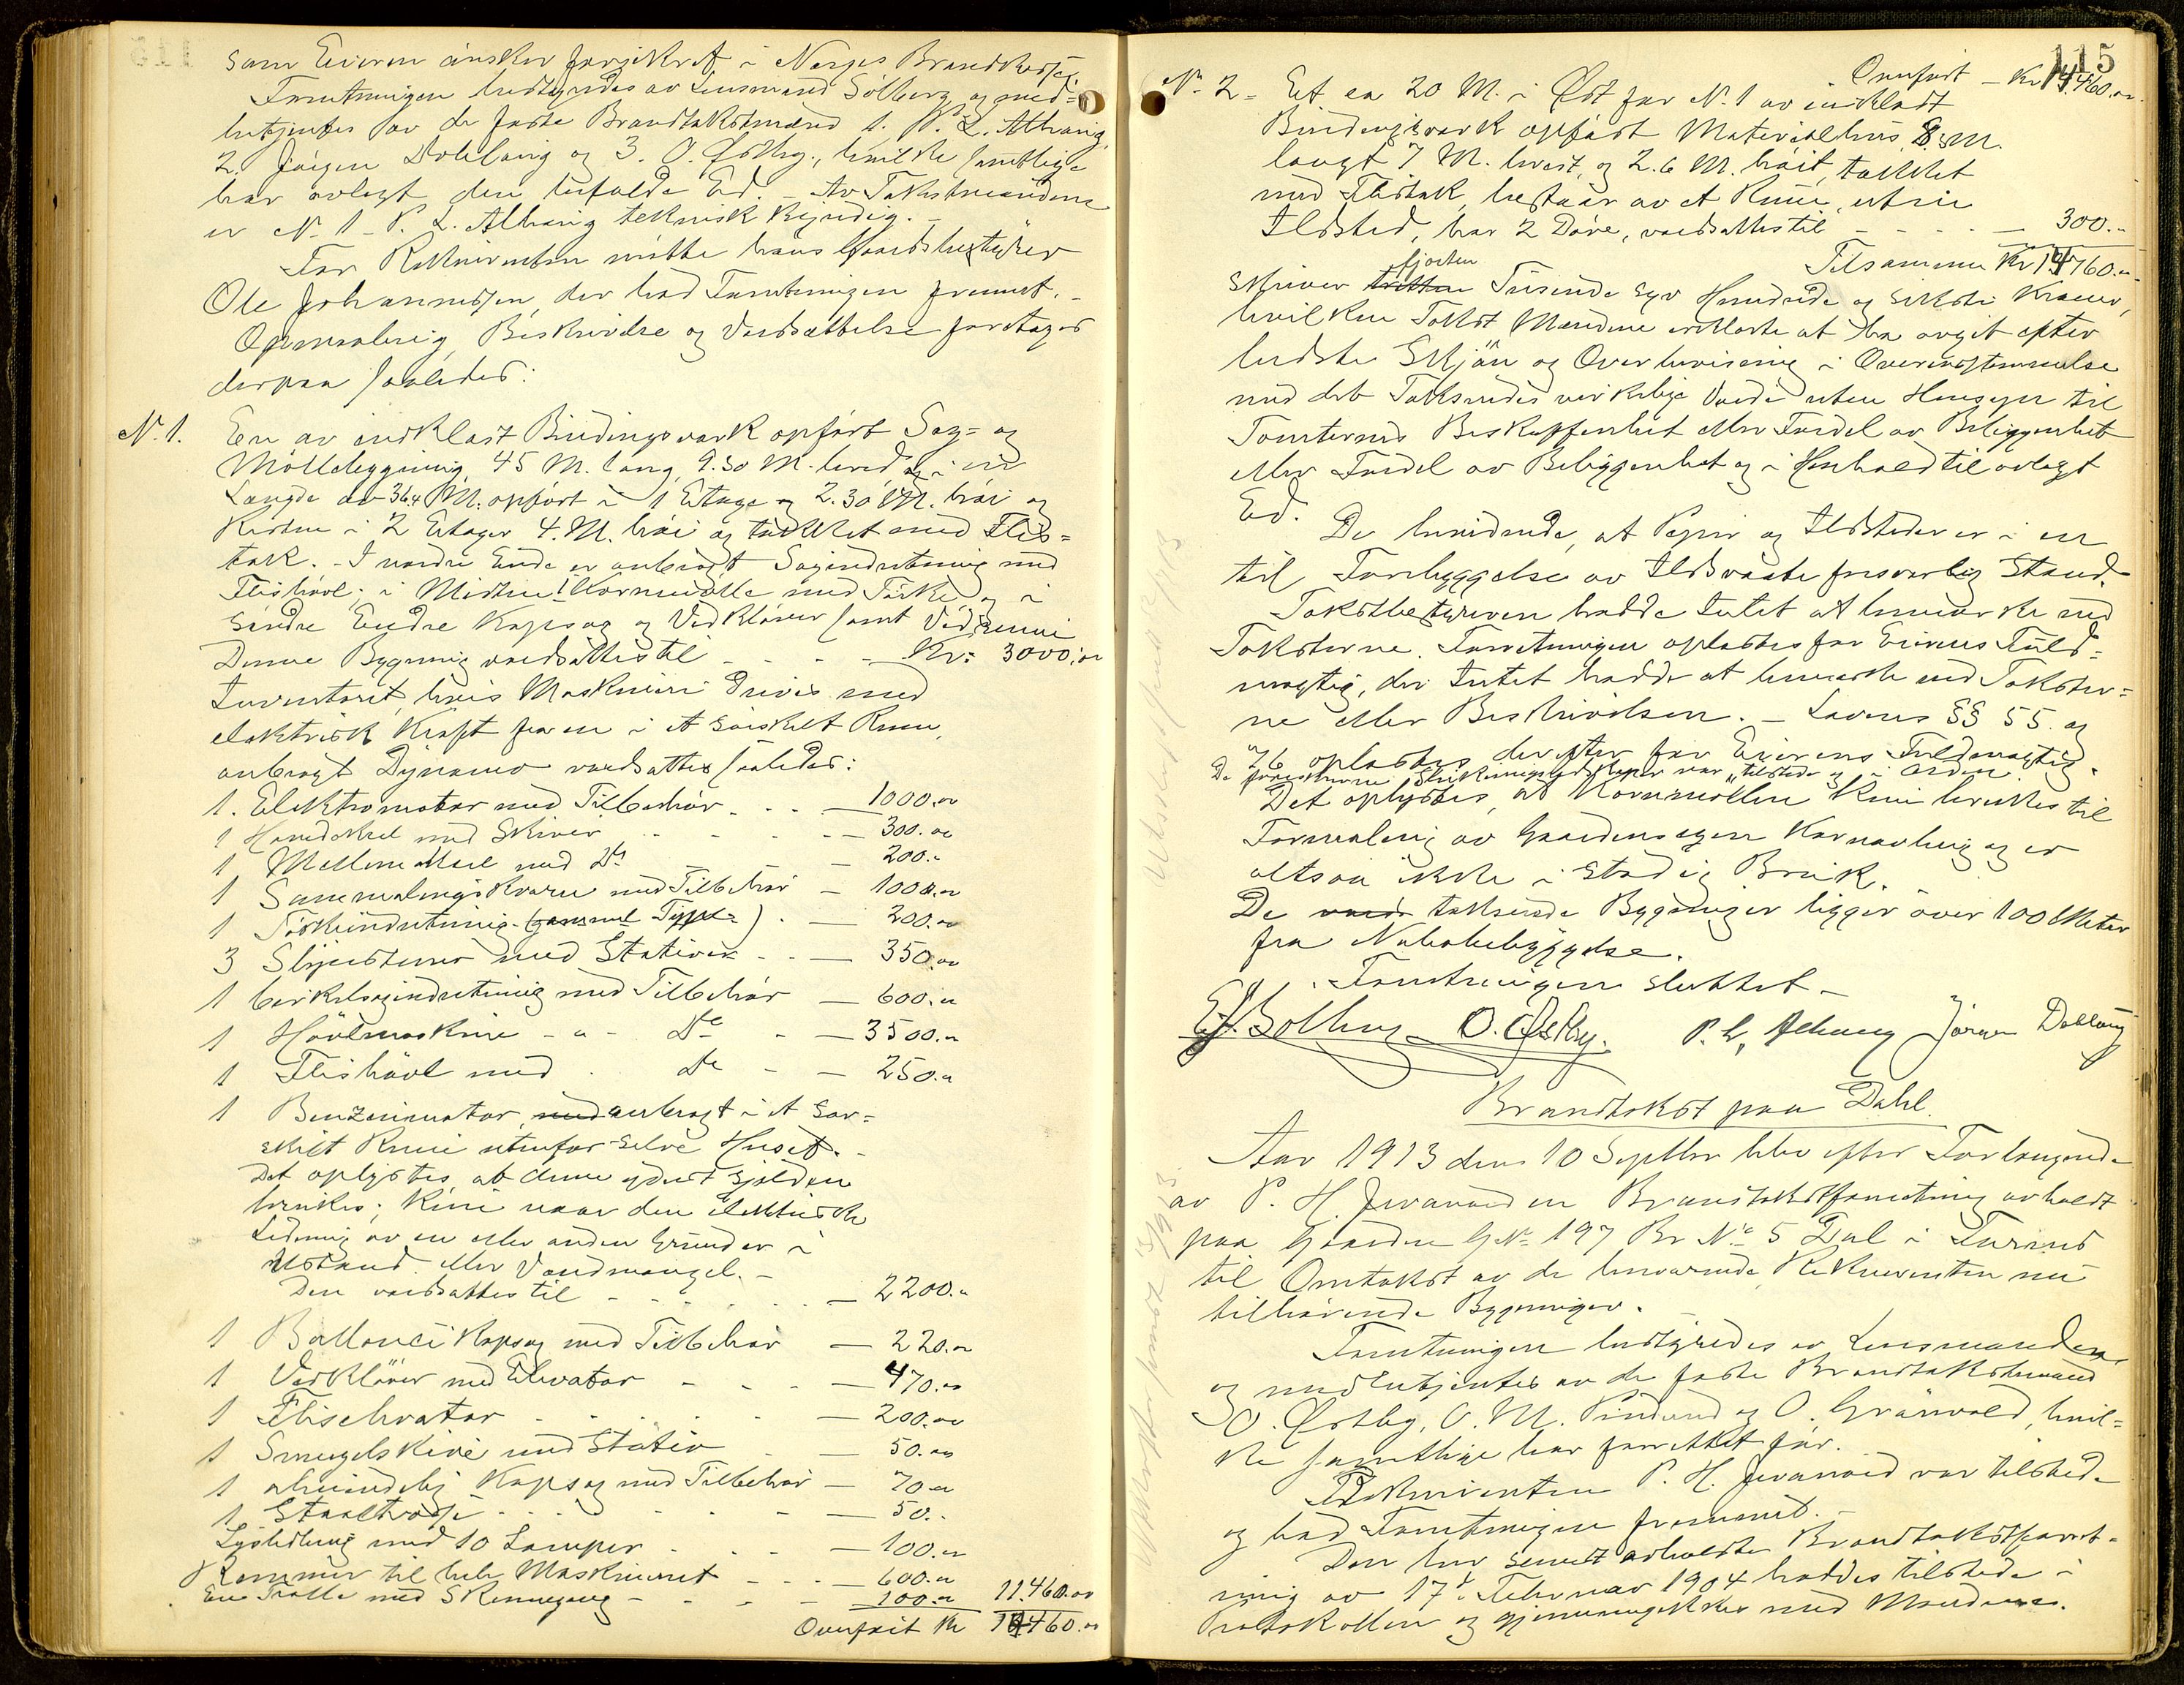 som Eieren ønsker forsikret i Norges Brandkasse.
Forretningen bestyredes av Lensmand Solberg og med=
betjentes av de faste Brandtakstmænd 1. P. L. Alhaug
2. Jørgen Dobloug og 3. O. Østby, hvilke samtlige
har avlagt den befalde Ed. – Av Takstmændene
er No 1 – P. L. Alhaug teknisk kyndig. –
For Rekvirenten møtte hans Gaardsbestyrer
Ole Johannessen, der bad Forretningen fremmet. –
Opmaaling, Beskrivelse og Værdsættelse foretages
derpaa saaledes:
No. 1. En av indklædt Bindingsværk opført Sag= og
Møllebygning, 45 M. lang, 9.30 M. bred og i en
Længde av 36.4 M. opført i 1 Etage og 2.30 M. høi og
Resten i 2 Etager 4. M. høi og tækket med Flis=
tak. – I nordre Ende er anbragt Sagindretning med
Flishøvl; i Midten Kornmølle med Tørke og i
søndre Ende Kapsag og Vedkløver samt Vedrum
Denne Bygning værdsættes til – – – – Kr: 3000.00
Inventaret, hvis Maskineri drives med
elektrisk Kraft fra en i et særskilt Rum,
anbragt Dynamo værdsættes saaledes:
1. Elektromotor med Tilbehør – – – 1000.00
1 Hovedaksel med Skiver – – – 300.00
1 Mellemaksel med Do – – 200.-
1 Sammalingskværn med Tilbehør – 1000.00
1 Tørkeindretning (gammel Type) – 200.00
3 Slipestener med Stativer – – 350.00
1 Cirkelsagindretning med Tilbehør – 600.00
1 Høvlmaskine – " – Do – – 3500.00
1 Flishøvl med – Do – – 250.00
1 Benzinmotor, med anbragt i et sær=
skilt Rum utenfor selve Huset. –
Det oplystes, at denne yderst sjelden
brukes; kun naar den elektriske
Ledning av en eller anden Grund er i
Ustand eller Vandmangel. –
Den værdsættes til – – – – – 2200.-
1 Ballance Kapsag med Tilbehør – 220.00
1 Vedkløver med Elevator – – – 470.00
1 Fliselevator – – – – 200.00
1 Smergelskive med Stativ – – 50.00
1 almindelig Kapsag med Tilbehør – 70.00
1 – – – – 50.-
Lysledning med 10 Lamper – – – 100.00
Remmer til hele Maskineriet – – – 600.00
En Tralle med Skinnegang – – – – 100.00 11.460.00
Overført Kr 14460.00
115
Overført – Kr 14.460.00
No. 2 = Et ca 20 M. i Øst for No. 1 av indklædt
Bindingsværk opført Materialhus, 8. M.
langt 7 M. bredt, og 2.6 M. høit, tækket
med Flistak, bestaar av et Rum, uten
Ildsted, har 2 Døre, værdsættes til – – – – 300.-
Tilsammen Kr 14760.00
fjorten
skriver tretten Tusende syv Hundrede og seksti Kroner,
hvilken Takst Mændene erklærte at ha avgit efter
bedste Skjøn og Overbevisning i Overensstemmelse
med det Takseredes virkelige Værdi uten Hensyn til
Tomternes Beskaffenhet eller Fordel av Beliggenhet
eller Fordel av Beliggenhet og i Henhold til avlagt
Ed.
De bevidnede, at Peiser og Ildsteder er i en
til Forebyggelse av Ildsvaade forsvarlig Stand.
Takstbestyreren hadde Intet at bemærke ved
Taksterne. Forretningen oplæstes for Eierens Fuld=
mægtig, der Intet hadde at bemærke ved Takster=
ne eller Beskrivelsen. – Lovens §§ 55. og
76 oplæstes derefter for Eierens Fuldmægtig.
De foreskrevne Slukningsredskaper var tilstede og i Orden.
Det oplystes, at Kornmøllen kun brukes til
Formaling av Gaardens egen Kornavling og er
altsaa ikke i stadig Bruk.
De takserede Bygninger ligger over 100 Meter
fra Nabobebyggelse.
Forretningen sluttet –
O. Østby. P. L. Alhaug Jørgen Dobloug
Brandtakst paa Dahl.
Aar 1913 den 10 Septbr blev efter Forlangende
av P. H. en Brandtakstforretning avholdt
paa Gaarden GNo 197 Br No 5 Dal i Furnes
til Omtakst av de henværende Rekvirenten nu
tilhørende Bygninger.
Forretningen bestyredes av Lensmanden
og medbetjentes av de faste Brandtakstmænd
O. Østby, O. M. og O. Grønvold, hvil=
ke samtlige har forrettet før.
Rekvirenten P. H. var tilstede
og bad Forretningen fremmet. –
Den her senest avholdte Brandtakstforret=
ning av 17de Februar 1904 haddes tilstede i
Protokollen og gjennemgikkes med Mændene.